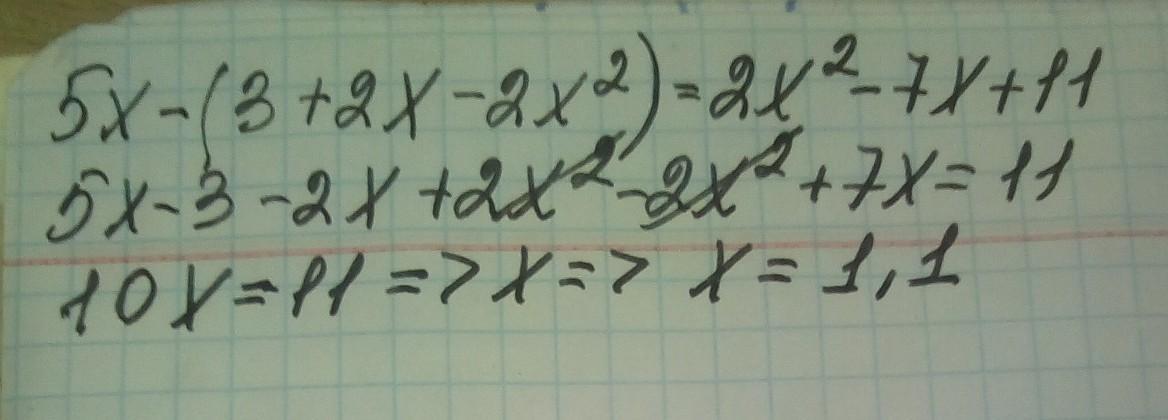 5x-(3+2x-2x²)=2x²-7x+11
5x-3-2x+2x²-2x²+7x=11
10x=11=>x=> x=1,1